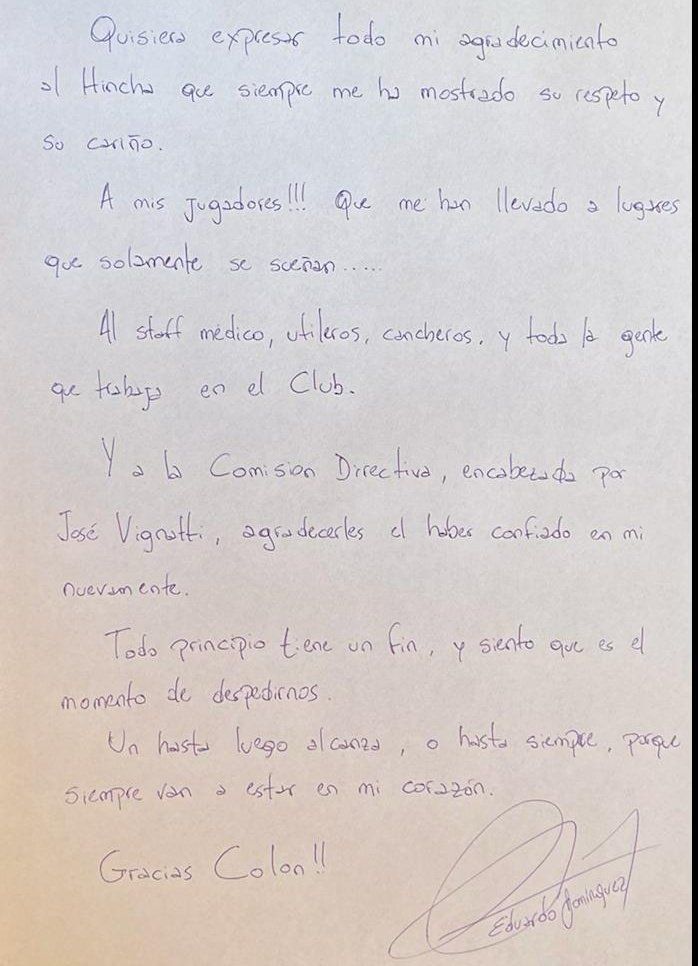 Quisiera expresar todo mi agradecimiento
al Hincha que siempre me ha mostrado su respeto y
su cariño.
A mis jugadores!!! Que me han llevado a lugares
que solamente se sueñan.....
Al staff médico, utileros, cancheros, y toda la gente
que trabaja en el Club.
Y a la Comision Directiva, encabezada por
José Vignatti, agradecerles el haber confiado en mi
nuevamente.
Todo principio tiene un fin, y siento que es el
momento de despedirnos.
Un hasta luego alcanza, o hasta siempre, porque
siempre van a estar en mi corazón.
Gracias Colon!!
Eduardo Dominguez